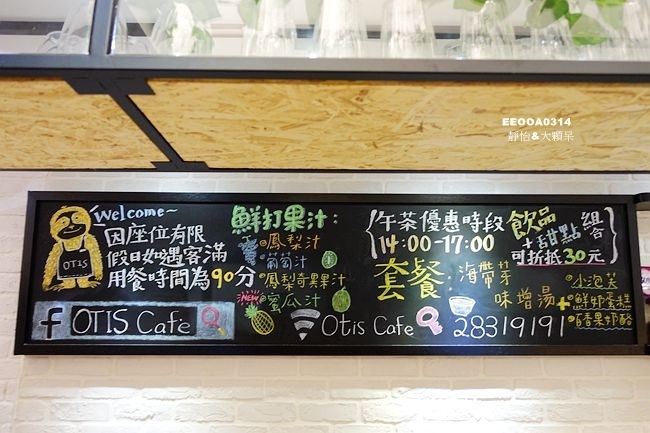 EEOOA0314
靜怡&大顆呆
Welcome~
因座位有限
假日如遇客滿
用餐時間為90分
OTIS
f OTIS Cafe
鮮打果汁:
鳳梨汁
葡萄汁
鳳梨奇異果汁
NEW
蜜瓜汁
Otis Cafe 28319191
午茶優惠時段
14:00-17:00
飲品
+甜點 組合
可折抵30元
套餐:海帶芽
味增湯+
小泡芙
鮮奶蛋糕
百香果奶酪